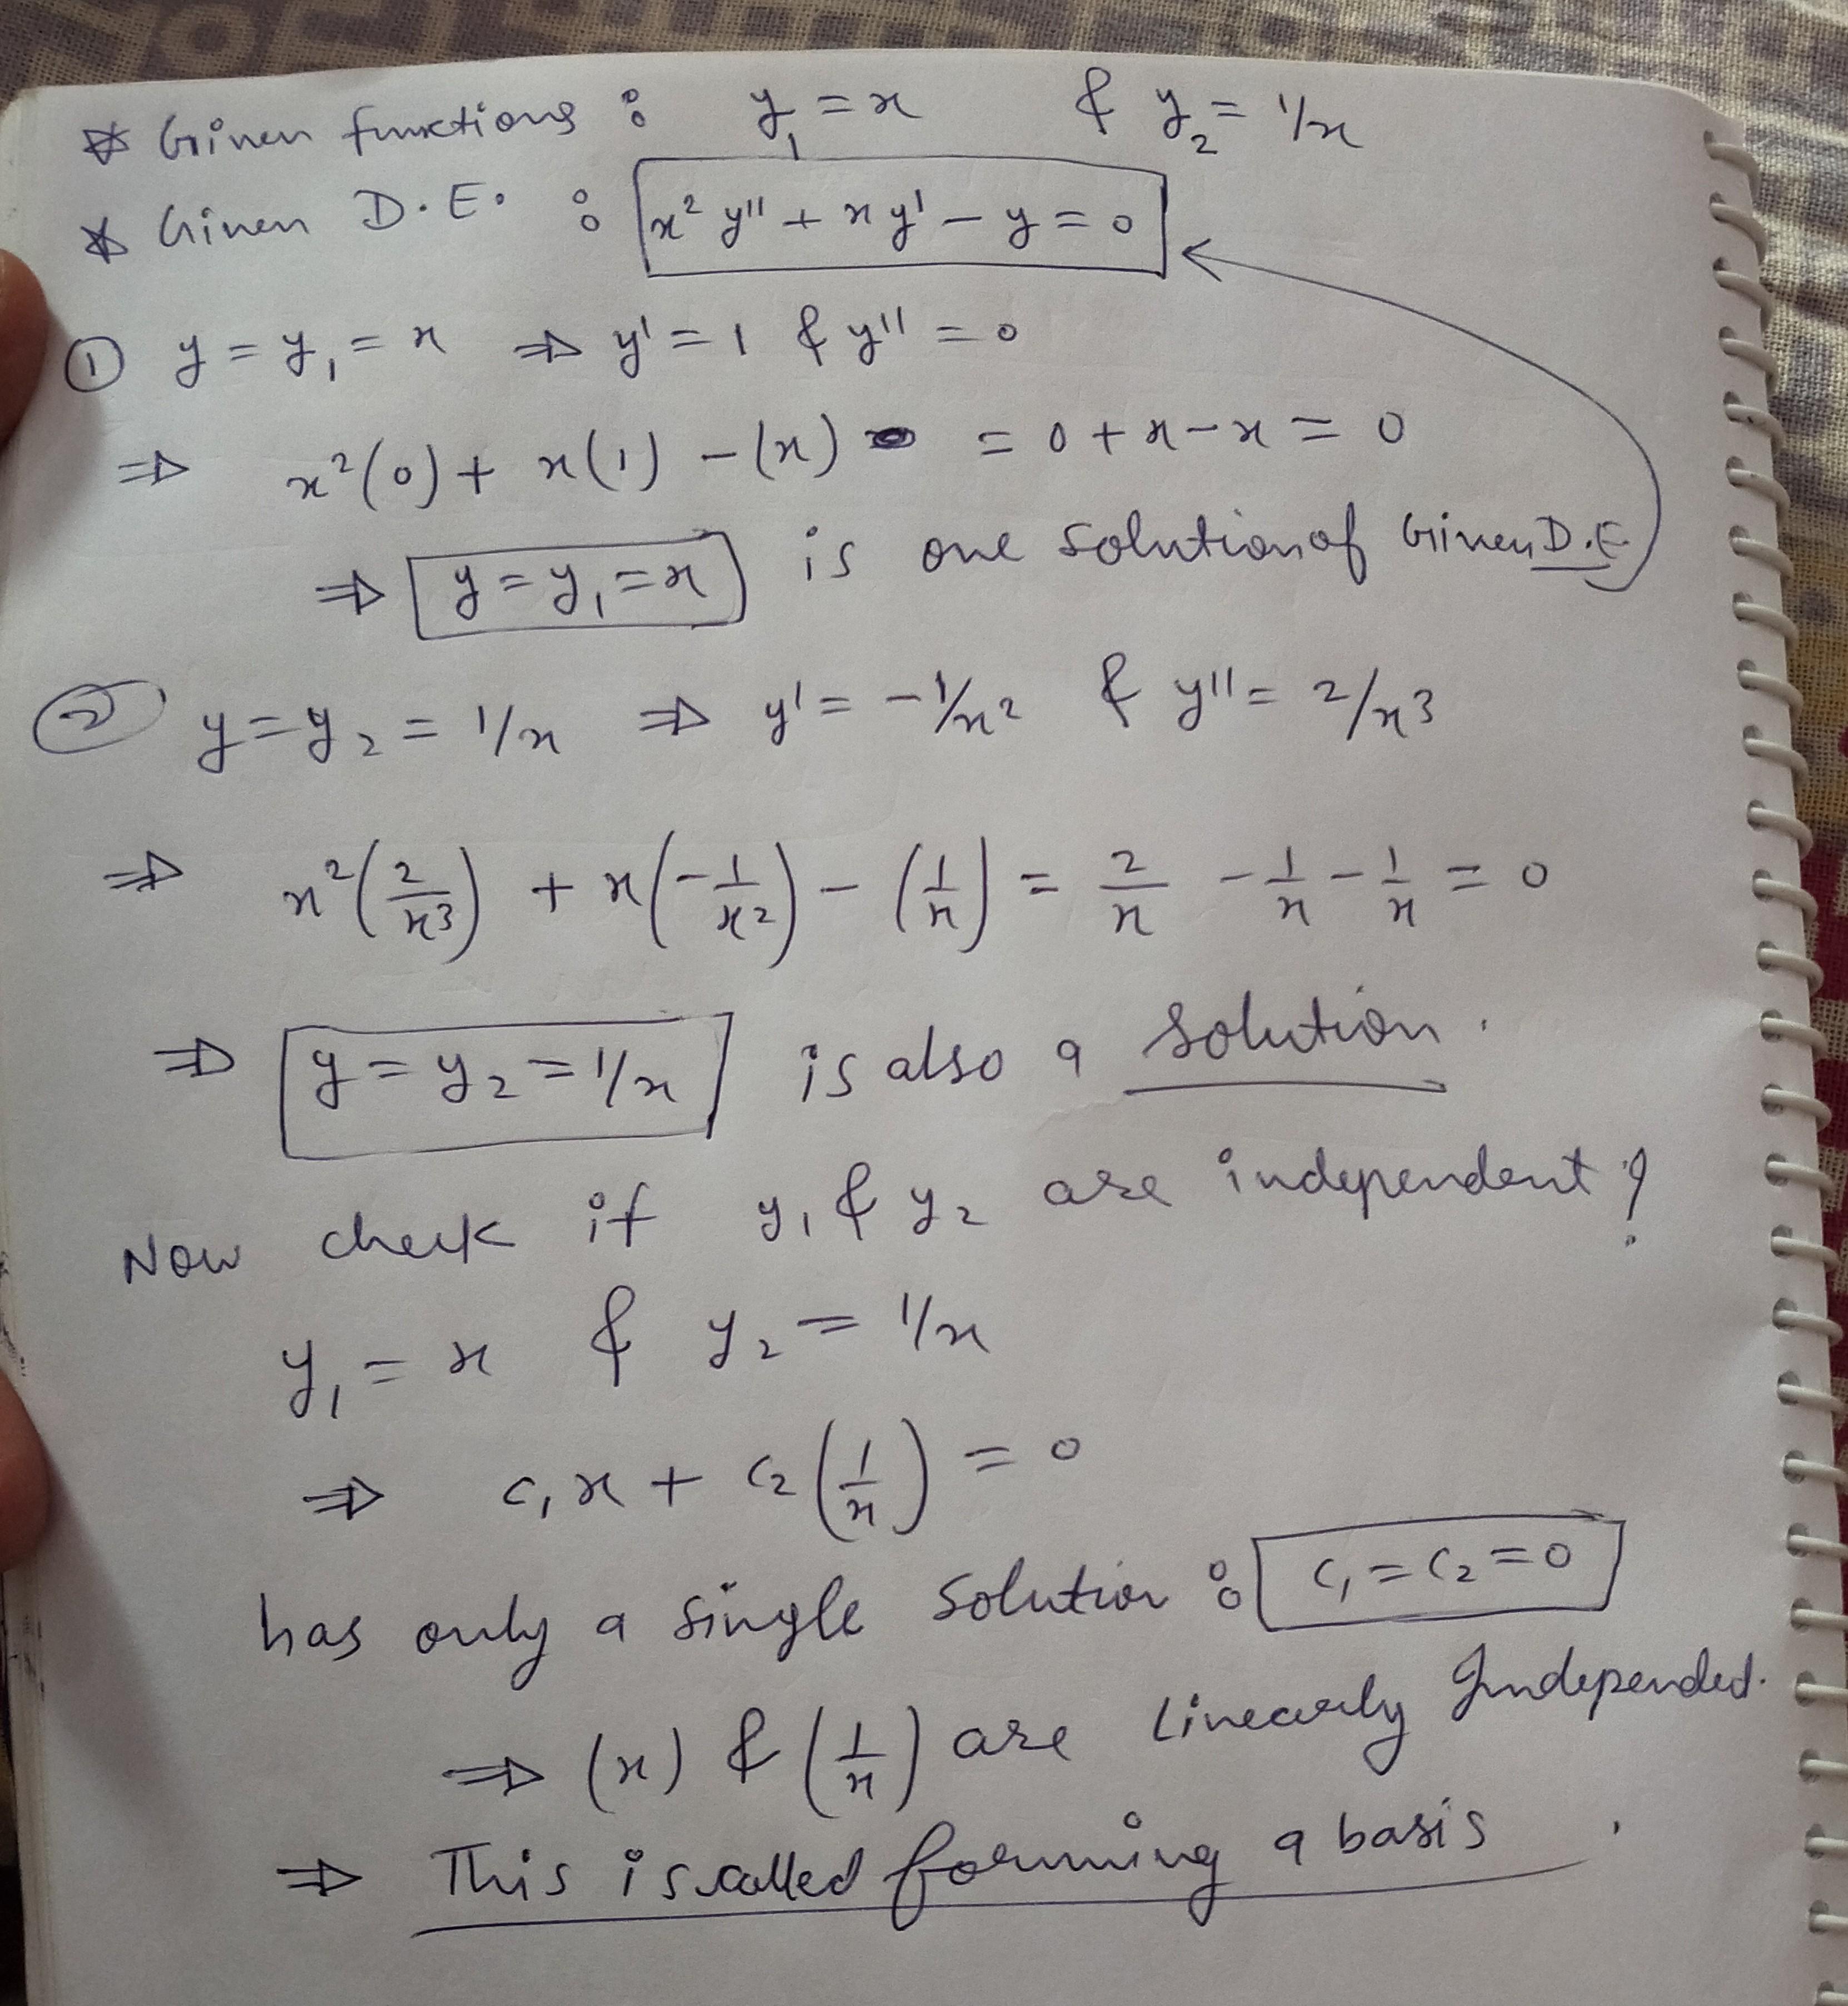 * Given functions : y₁ = x & y₂ = 1/x
* Given D.E. : x² y'' + x y' - y = 0
① y = y₁ = x ⇒ y' = 1 & y'' = 0
⇒ x²(0) + x(1) - (x) = 0 + x - x = 0
⇒ y = y₁ = x is one solution of Given D.E.
② y = y₂ = 1/x ⇒ y' = -1/x² & y'' = 2/x³
⇒ x²(2/x³) + x(-1/x²) - (1/x) = 2/x - 1/x - 1/x = 0
⇒ y = y₂ = 1/x is also a solution.
Now check if y₁ & y₂ are independent?
y₁ = x & y₂ = 1/x
⇒ c₁x + c₂(1/x) = 0
has only a single solution : c₁ = c₂ = 0
⇒ (x) & (1/x) are Linearly Independed.
⇒ This is called forming a basis.